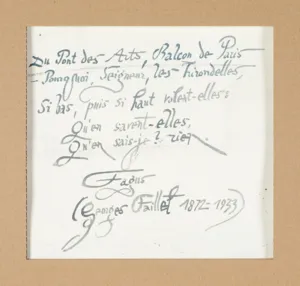 Du Pont des Arts, Balcon de Paris
= Pourquoi, Seigneur, les hirondelles,
Si bas, puis si haut volent-elles?
Qu'en savent-elles,
Qu'en sais-je? rien.
Fagus
(Georges Faillet 1872=1933)